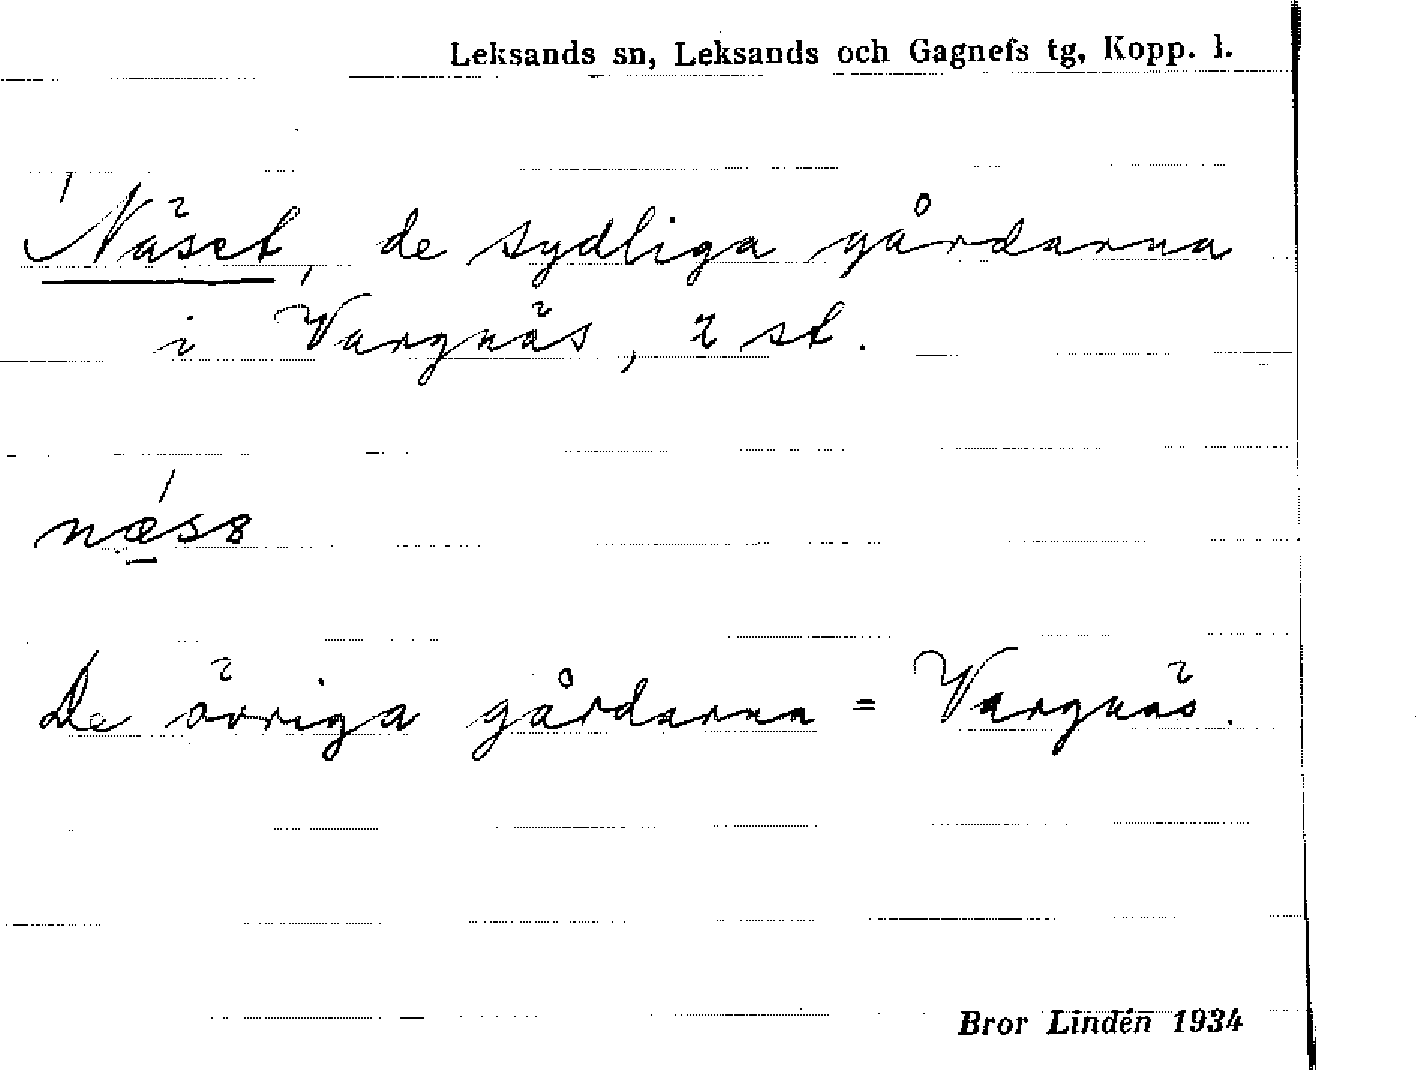 Leksands sn, Leksands och Gagnefs tg, Kopp. l.
Näset, de sydliga gårdarna
i Vargnäs, 2 st.
De övriga gårdarna = Vargnäs.
Bror Lindén 1934